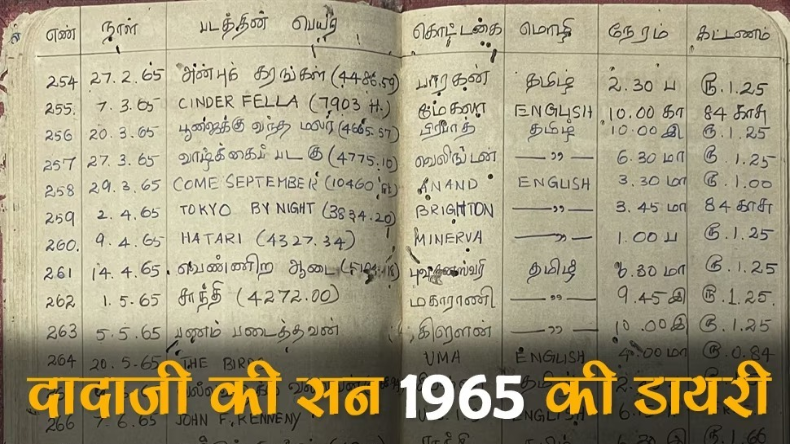 எண் நாள் படத்தின் பெயர் கொட்டகை மொழி நேரம் கட்டணம்
254 27.2.65 அன்புக் கரங்கள் (4486.59) பாரகன் தமிழ் 2.30 ப ரூ.1.25
255. 7.3.65 CINDER FELLA (7903 ft.) ENGLISH 10.00 கா 84 காசு
256 20.3.65 பூஜைக்கு வந்த மலர் (4665.57) பிராட் தமிழ் 10.00 இ ரூ.1.25
257 27.3.65 வாழ்க்கைப் படகு (4775.10) வெலிங்டன் —〃— 6.30 மா ரூ.1.25
258 29.3.65 COME SEPTEMBER (10460 ft.) ANAND ENGLISH 3.30 மா ரூ.1.00
259 2.4.65 TOKYO BY NIGHT (3834.20) BRIGHTON —〃— 3.45 மா 84 காசு
260. 9.4.65 HATARI (4327.34) MINERVA —〃— 1.00 ப ரூ.1.25
261 14.4.65. வெண்ணிற ஆடை புவனேஸ்வரி தமிழ் 6.30 மா ரூ.1.25
262 1.5.65 சாந்தி (4272.00) மகாராணி —〃— 9.45 இ ரூ.1.25.
263 5.5.65 பணம் படைத்தவன் கிரௌன் —〃— 10.00 இ ரூ.1.25
264 20.5.65 THE BIRDS UMA ENGLISH 4.00 மா ரூ.0.84
दादाजी की सन 1965 की डायरी
266 7.6.65 JOHN F. KENNENY ENGLISH